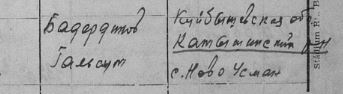 Бадердинов
Гальсут
Куйбышевская обл
Камышлинский р-н
с. Ново Усман